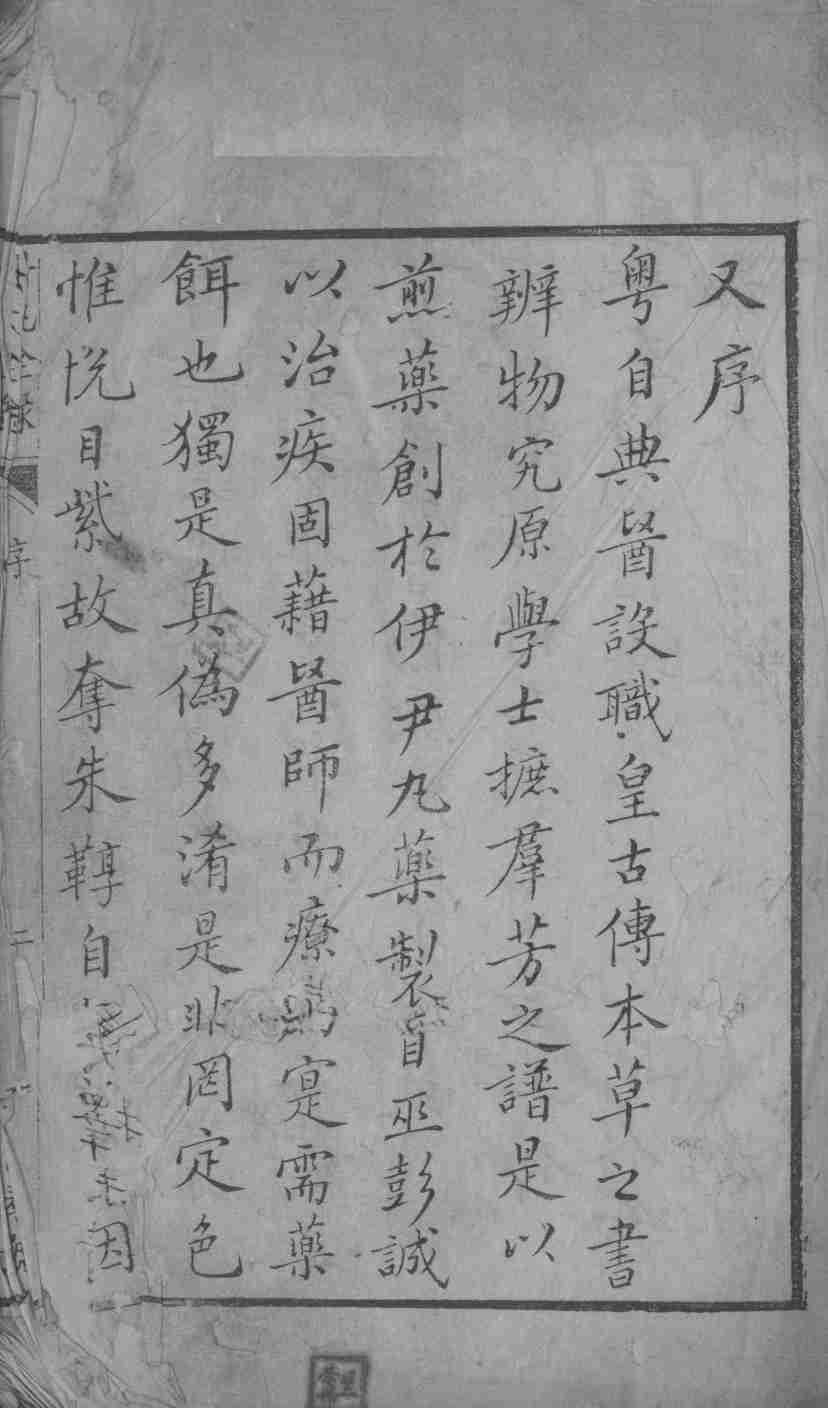 又序
粤自典醫設職皇古傳本草之書
辨物究原學士摭羣芳之譜是以
煎藥創於伊尹丸藥製自巫彭誠
以治疾固藉醫師而療病寔需藥
餌也獨是真偽多淆是非罔定色
惟悅目紫故奪朱鞟自因
序
二